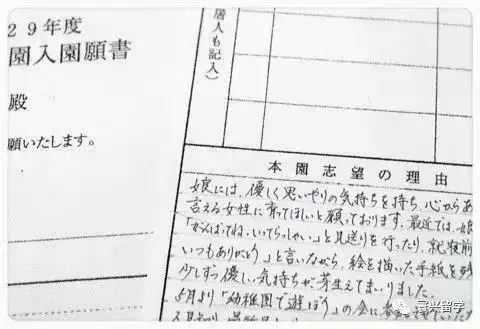 29年度
園入園願書
殿
願いたします。
居人も記入)
本園志望の理由
娘には、優しく思いやりの気持ちを持ち、心からあ
言える女性に育ってほしいと願っております。最近では、娘
「がんばってね、いってらっしゃい」と見送りを行ったり、就寝前
いつもありがとう」と言いながら、絵を描いた手紙を
少しずつ優しい気持ちが芽生えてまいりました。
5月より「幼稚園で遊ぼう」の会に参
留学